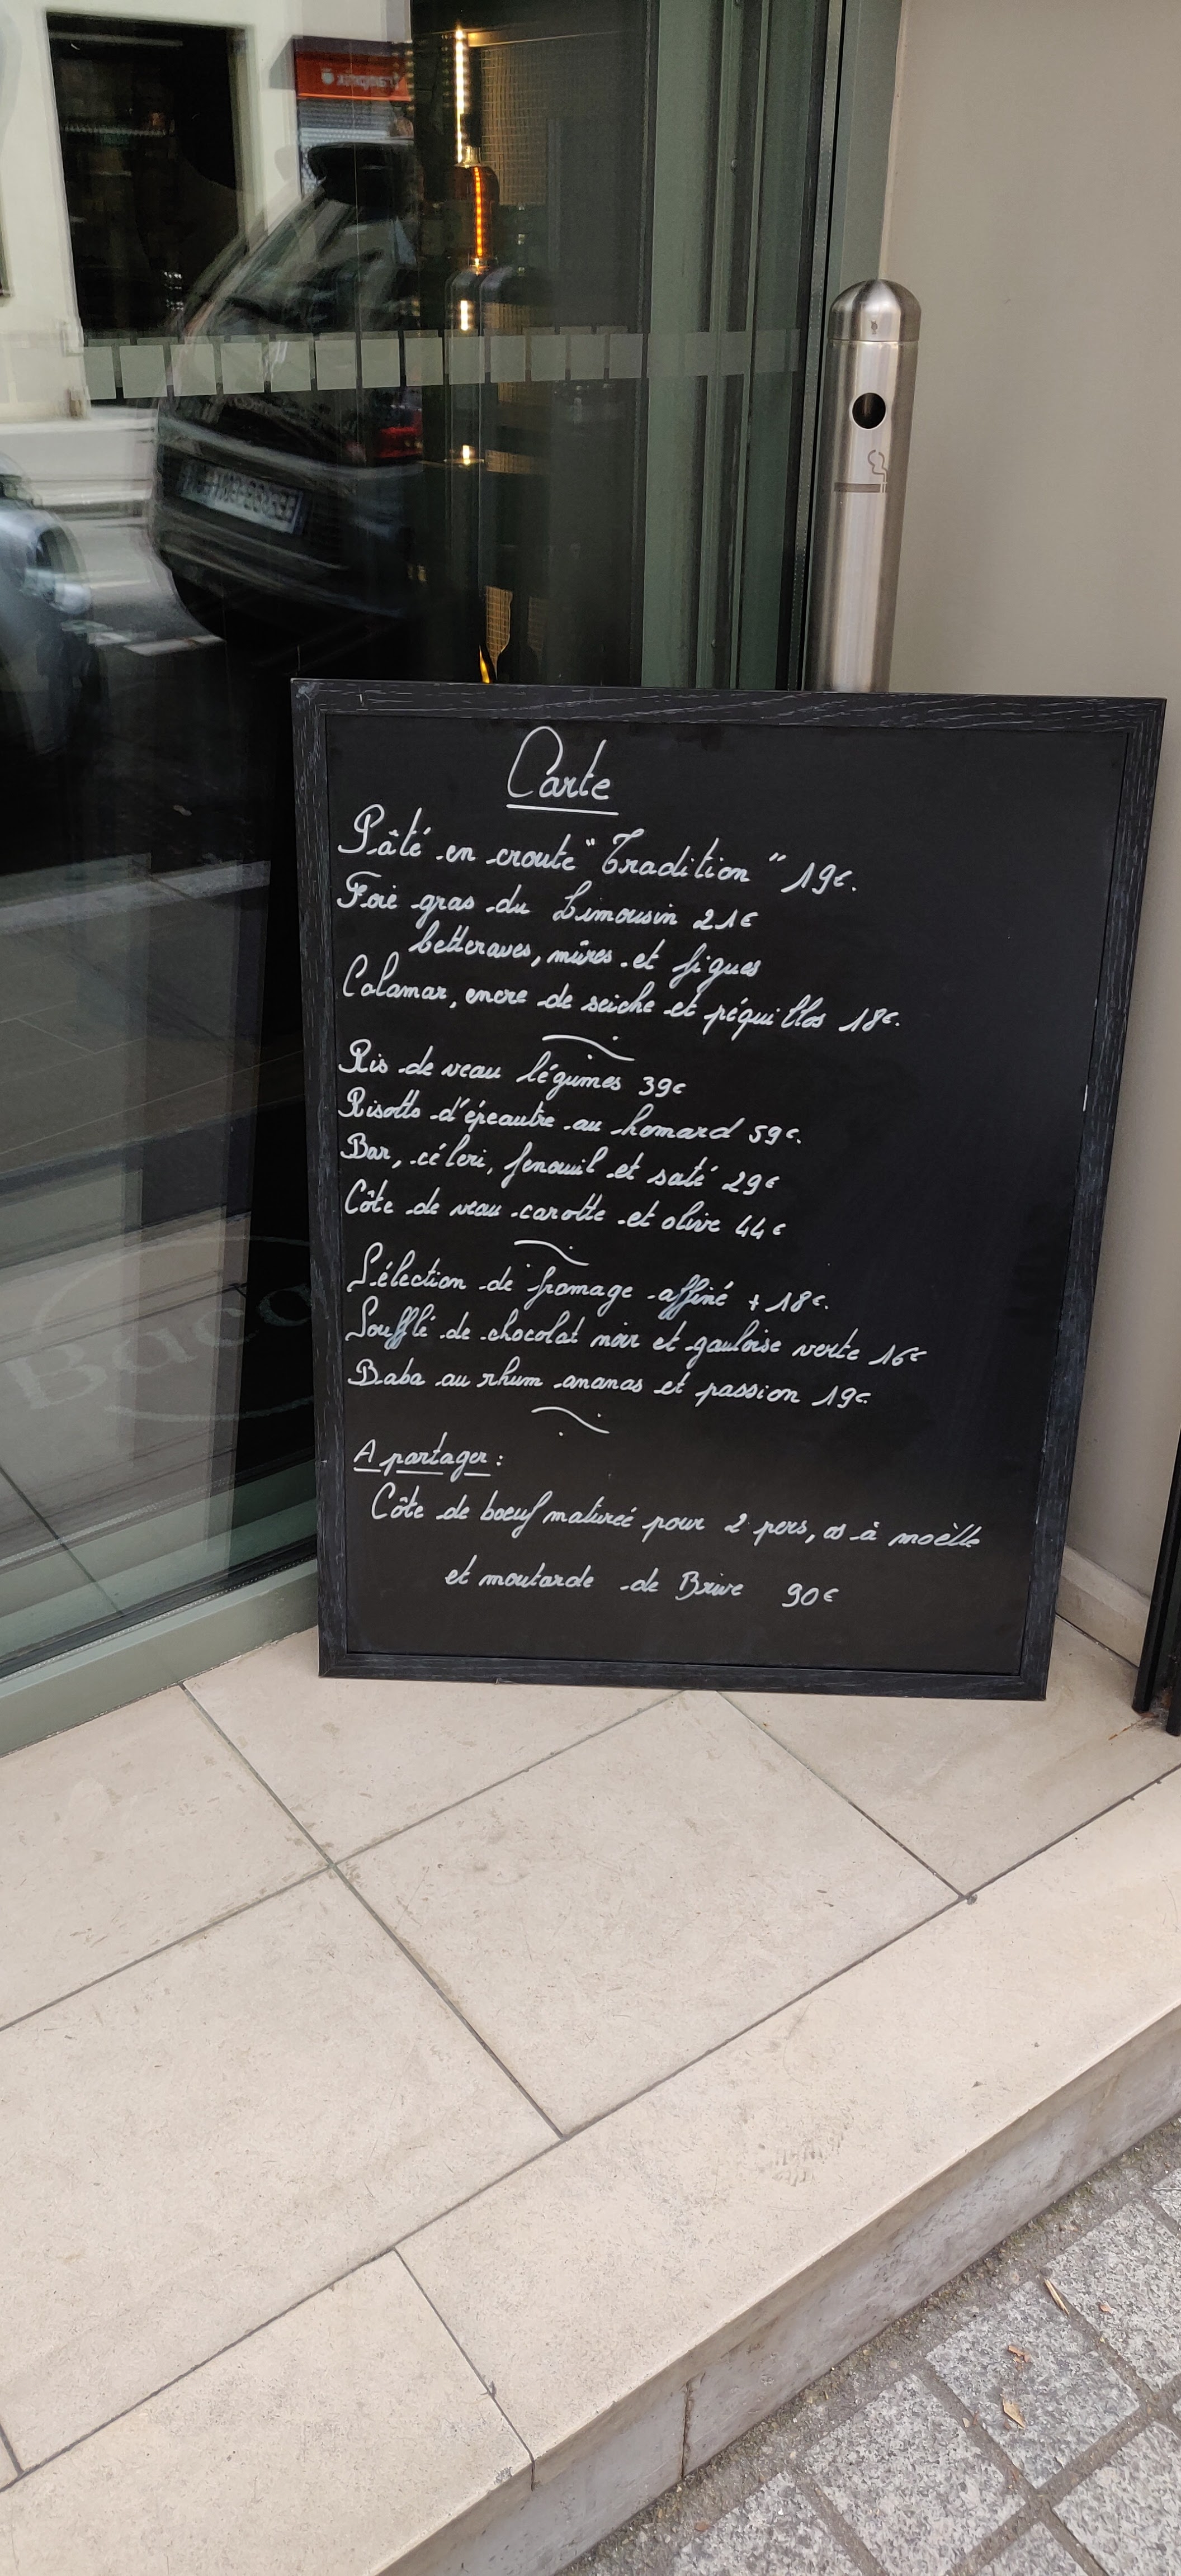 Carte
Pâté en croute "Tradition" 19€.
Foie gras du Limousin 21€
betteraves, mûres et figues
Calamar, encre de seiche et péquillos 18€.
Ris de veau légumes 39€
Risotto d'épeautre au homard 59€.
Bar, céleri, fenouil et saté 29€
Côte de veau carotte et olive 44€
Sélection de fromage affiné + 18€.
Soufflé de chocolat noir et gauloise verte 16€
Baba au rhum ananas et passion 19€.
A partager :
Côte de boeuf maturée pour 2 pers, os à moëlle
et moutarde de Brive 90€